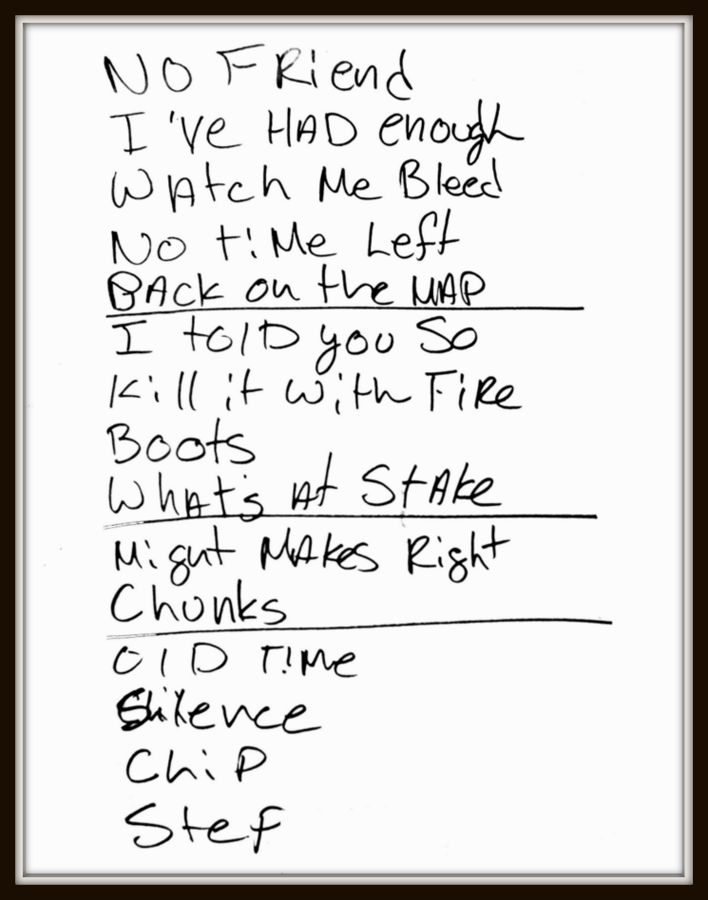 NO FRiend
I've HAD enough
WAtch Me Bleed
No tiMe Left
BAck on the MAP
I tolD you So
Kill it With FiRe
Boots
WhAt's At StAke
Might MAKes Right
Chunks
OlD TiMe
Silence
ChiP
Stef